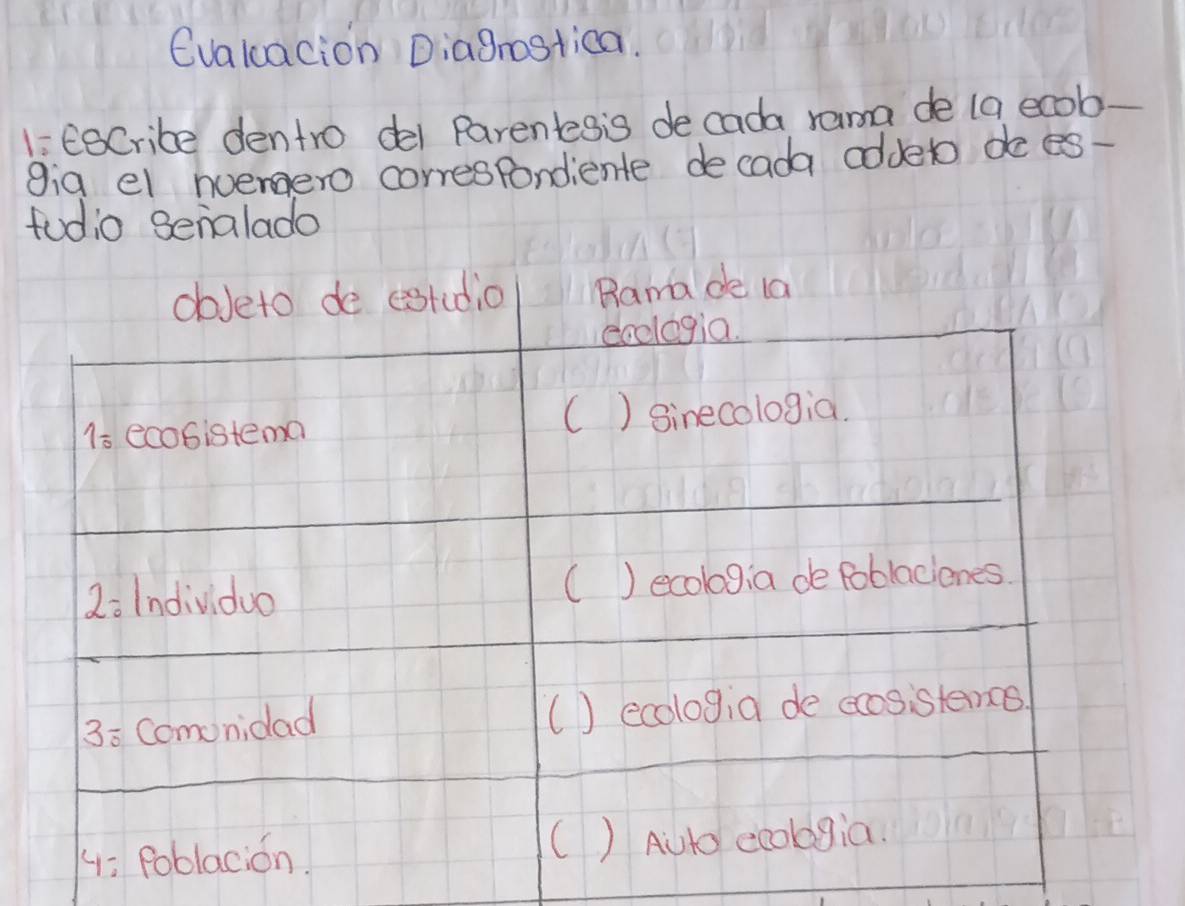 Evaluación Diagnostica.
1= escribe dentro del Parentesis de cada rama de la ecolo-
gia el nuemero correspondiente de cada objeto de es-
tudio señalado
objeto de estudio
Rama de la
ecologia.
1= ecosistema
( ) sinecologia.
2= Individuo
( ) ecologia de Poblaciones.
3= comunidad
( ) ecologia de ecosistemas.
4= Población.
( ) Auto ecologia.